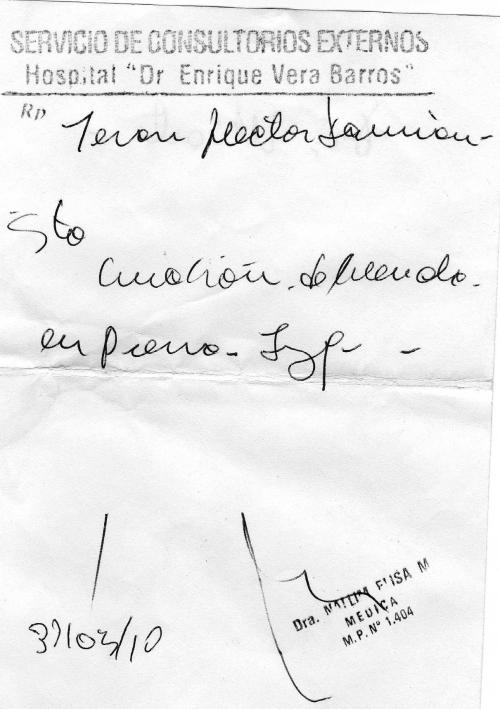 SERVICIO DE CONSULTORIOS EXTERNOS
Hospital "Dr Enrique Vera Barros"
Rp
Teran Hector Damian
Sto
Curación de herida
en Pierna Izq
Dra. ELISA M
MEDICA
M.P. Nº 1.404